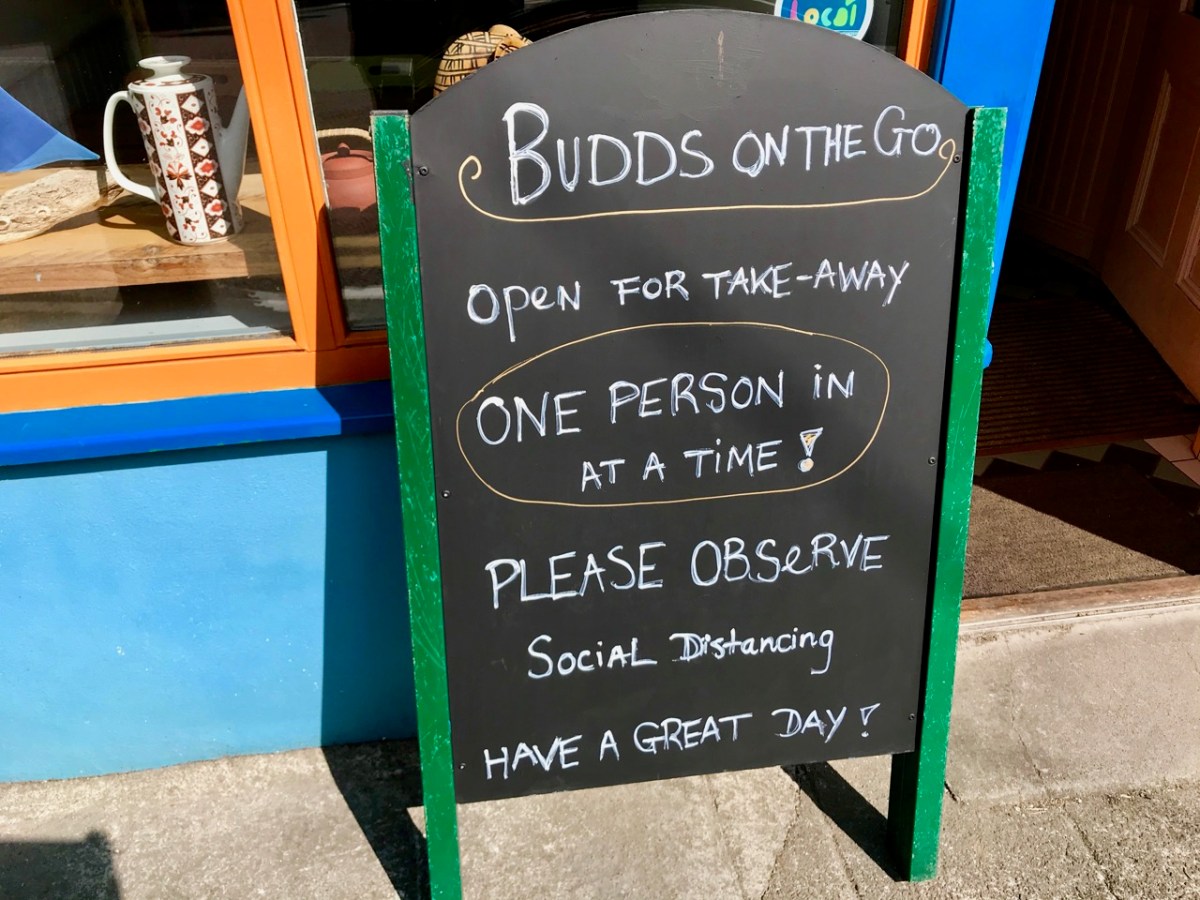 Local
BUDDS ON THE GO
Open FOR TAKE-AWAY
ONE PERSON iN
AT A TiME !
PLEASE OBSeRVE
SociAL Distancing
HAVE A GREAT DAY !